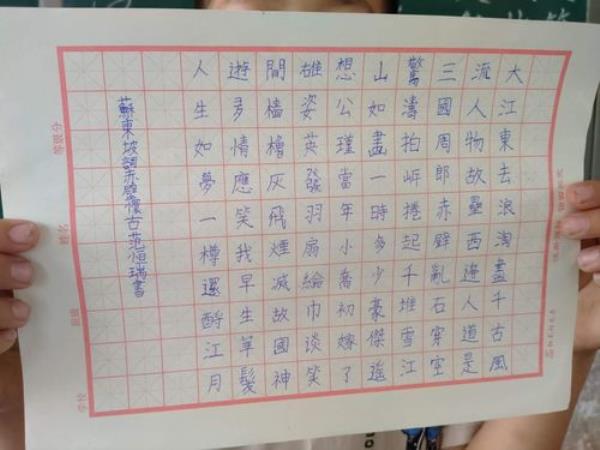 大江東去浪淘盡千古風
流人物故壘西邊人道是
三國周郎赤壁亂石穿空
驚濤拍岸捲起千堆雪江
山如畫一時多少豪傑遙
想公瑾當年小喬初嫁了
雄姿英發羽扇綸巾谈笑
間檣櫓灰飛煙滅故國神
遊多情應笑我早生華髮
人生如夢一樽還酹江月
蘇東坡調赤壁懷古范恒瑞書
学校
班级
姓名
等级分